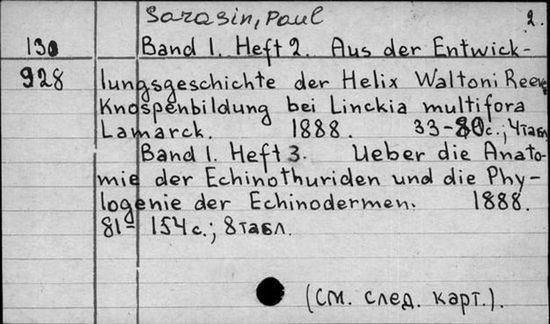 Sarasin, Paul 2.
130 Band 1. Heft 2. Aus der Entwick-
928 lungsgeschichte der Helix Waltoni Reeve
Knospenbildung bei Linckia multifora
Lamarck. 1888. 33-80с., 4табл
Band 1. Heft 3. Ueber die Anato-
mie der Echinothuriden und die Phy-
logenie der Echinodermen. 1888.
81- 154с.; 8табл.
(См. след. карт.).